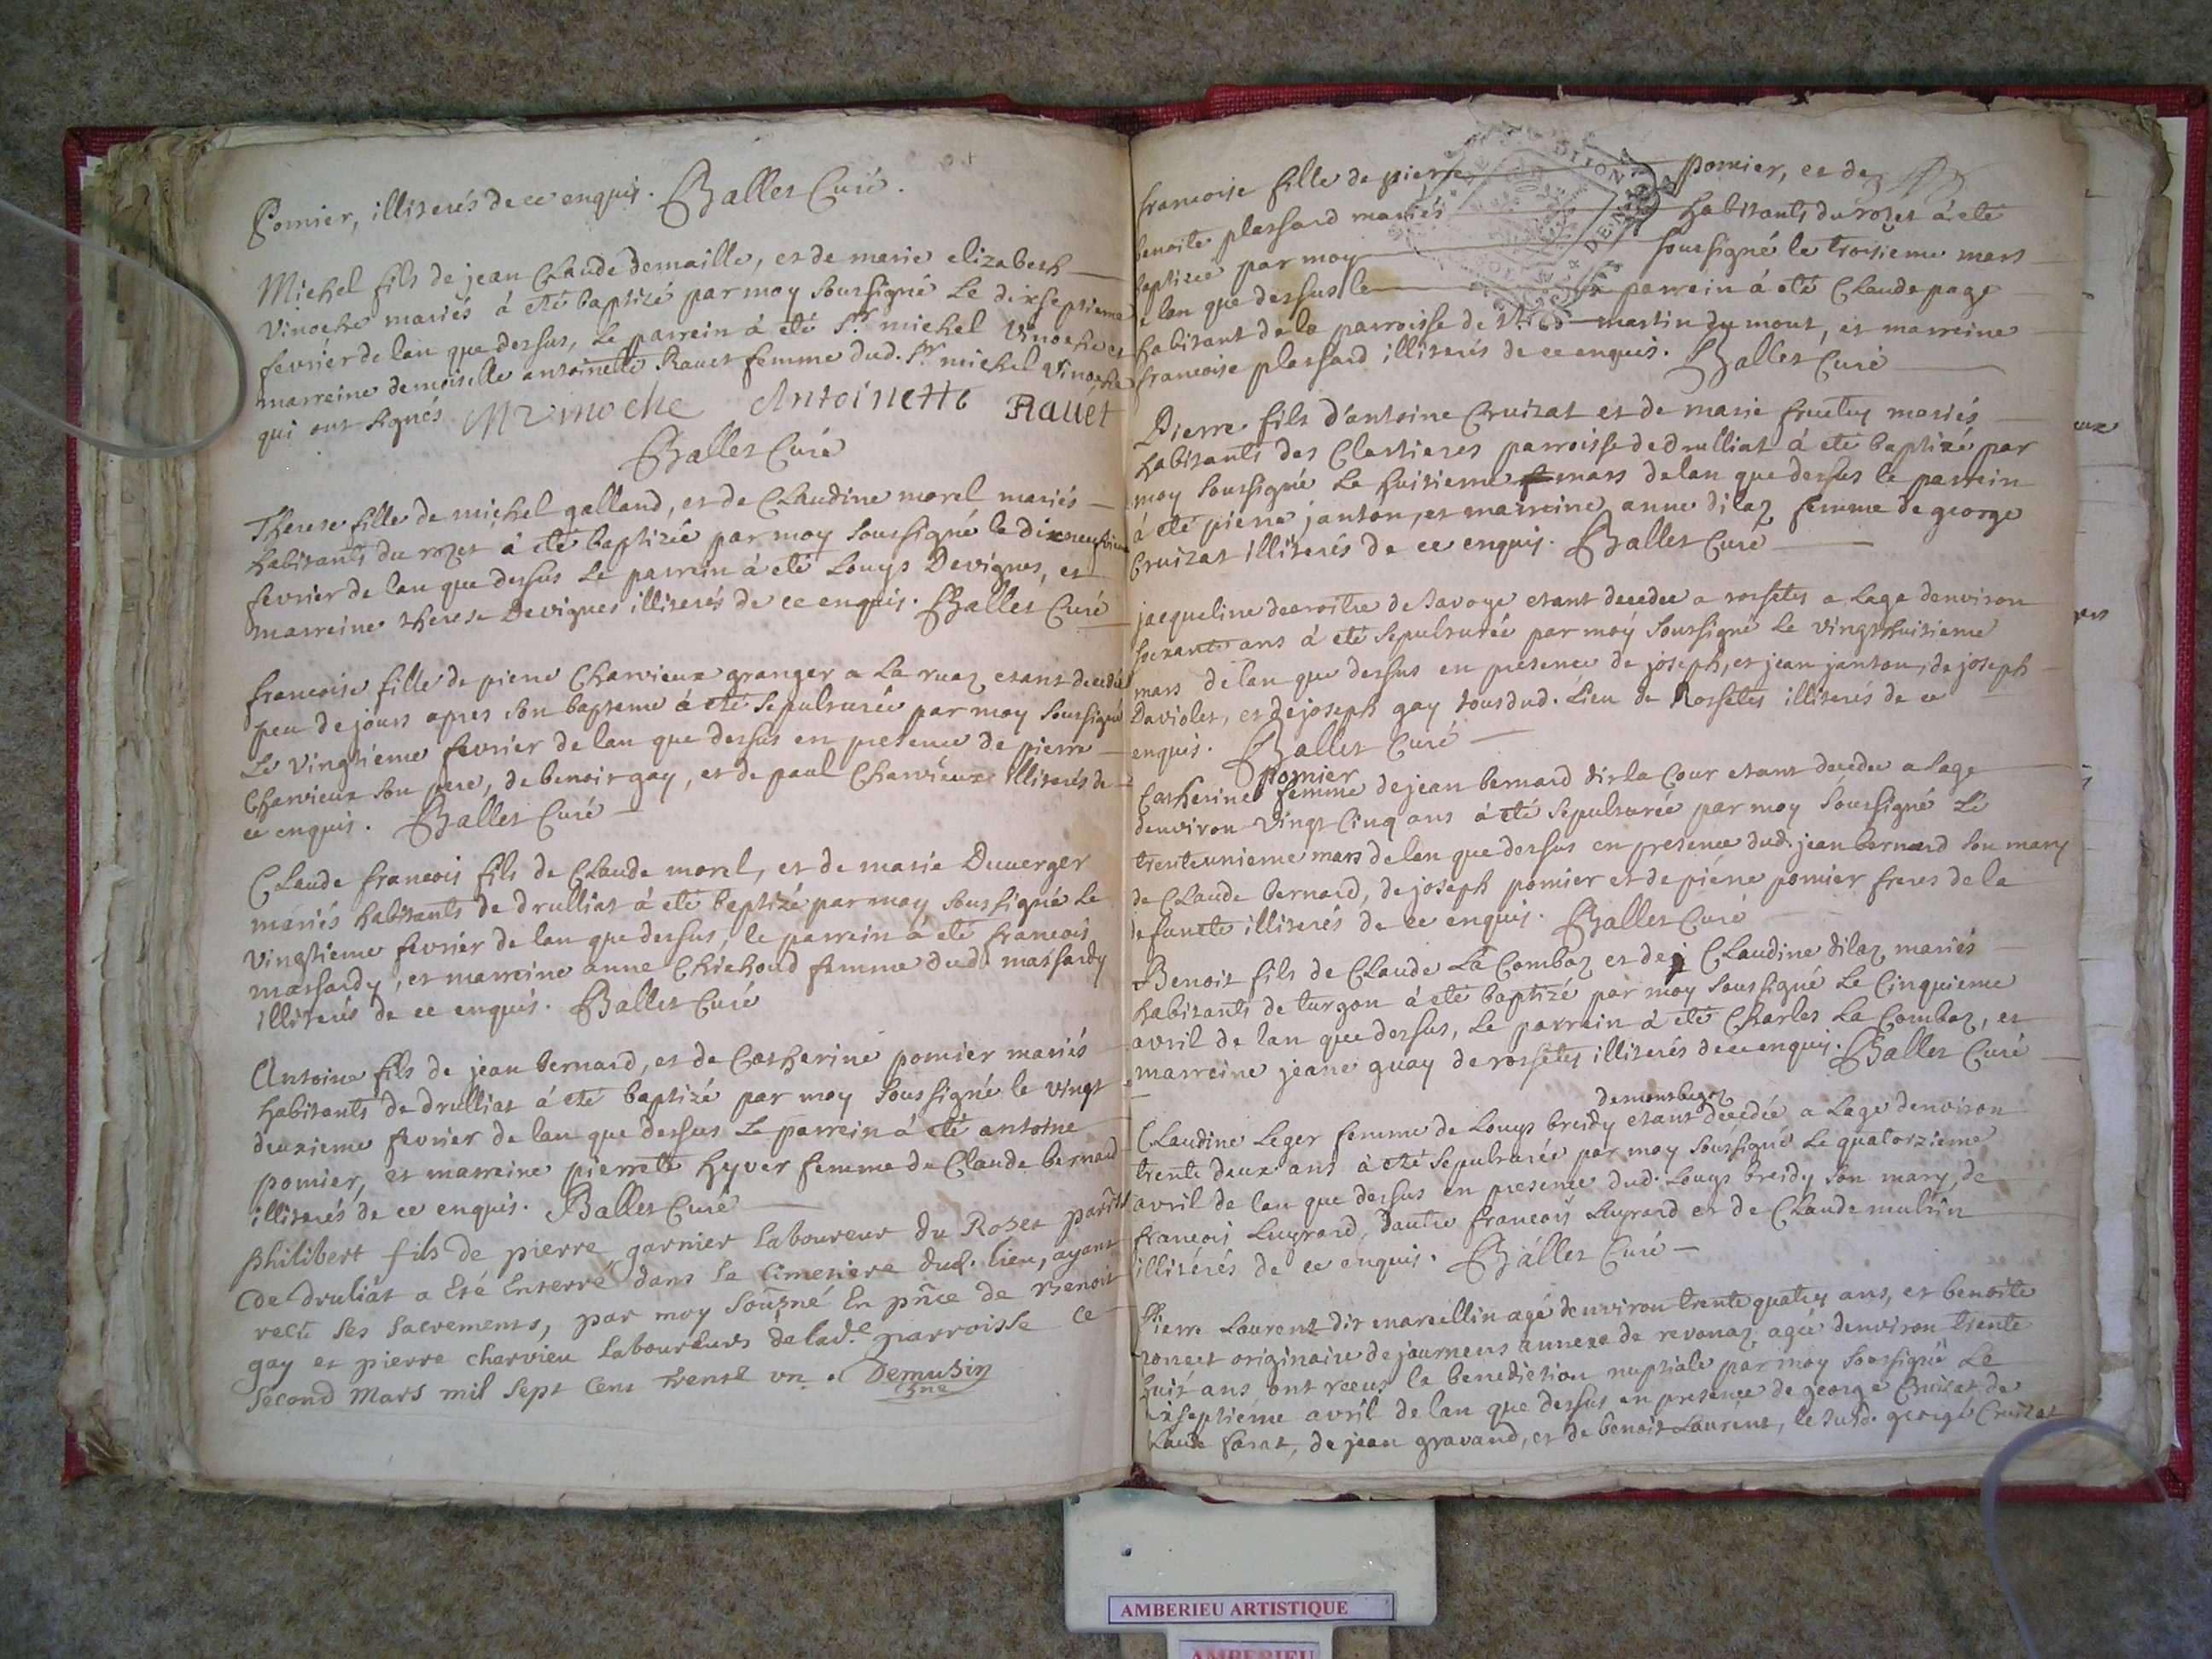 Pomier, illiterés de ce enquis. Ballet Curé.
Michel fils de jean Claude demaille, et de marie elizabeth
Vinoche mariés à eté baptizé par moy soussigné le dixseptieme
fevrier de lan que dessus, le parrein à eté Sr. michel Vinoche et
marreine demoiselle antoinette Rauet femme dud. Sr. michel Vinoche
qui ont signés M Vinoche Antoinette Rauet
Ballet Curé
Therese fille de michel galland, et de Claudine morel mariés
habitants du rozet à eté baptizée par moy soussigné le dixneuvieme
fevrier de lan que dessus le parrein à eté Louys Devignes, et
marreine therese Devignes illiterés de ce enquis. Ballet Curé
francoise fille de pierre Charvieux granger a La ruaz etant decedée
peu de jours apres son bapteme à eté sepulturée par moy soussigné
Le vingtieme fevrier de lan que dessus en presence de pierre
Charvieux son pere, de benoit gay, et de paul Charvieux illiterés de
ce enquis. Ballet Curé
Claude francois fils de Claude morel, et de marie Duverger
mariés habitants de drulliat à eté baptizé par moy soussigné Le
vingtieme fevrier de lan que dessus, le parrein à eté francois
massardy, et marreine anne Chichoud femme dud. massardy
illiterés de ce enquis. Ballet Curé
Antoine fils de jean bernard, et de Catherine pomier mariés
habitants de drulliat à eté baptizé par moy soussigné le vingt
deuxieme fevrier de lan que dessus Le parrein à eté antoine
pomier, et marreine pierrette hyver femme de Claude bernard
illiterés de ce enquis. Ballet Curé
philibert fils de pierre garnier laboureur du Rozet
de druliat a Eté Enterré dans le Cimetiere dud. lieu, ayant
recû ses sacrements, par moy En pñce de Benoit
gay et pierre charvieu laboureurs de lad.e parroisse ce
second Mars mil sept cent trente un. Demusin
francoise fille de pierre pomier, et de
benoite plassard mariés habitants du rozet à eté
baptizée par moy soussigné le troisieme mars
de lan que dessus le parrein à eté Claude page
habitant de la parroisse de St. martin du mont, et marreine
francoise plassard illiterés de ce enquis. Ballet Curé
Pierre fils d'antoine Cruizat et de marie mariés
habitants des Clartieres parroisse de drulliat à eté baptizé par
moy soussigné Le huitieme mars de lan que dessus le parrein
à eté pierre janton, et marreine anne dilaz femme de george
Cruizat illiterés de ce enquis. Ballet Curé
jacqueline decroitre de Savoye etant decedée a rossetes a Lage denviron
soixante ans à eté sepulturée par moy soussigné Le vingthuitieme
mars de lan que dessus en presence de joseph, et jean janton, de joseph
Daviolet, et de joseph gay tous dud. Lieu de Rossetes illiterés de ce
enquis. Ballet Curé
pomier
Catherine femme de jean bernard dit la Cour etant decedée a lage
denviron vingt Cinq ans à eté sepulturée par moy soussigné Le
trenteunieme mars de lan que dessus en presence dud. jean bernard son mary
de Claude bernard, de joseph pomier et de piérre pomier freres de la
defuncte illiterés de ce enquis. Ballet Curé
Benoit fils de Claude La Combaz et de Claudine dilaz mariés
habitants de turgon à eté baptizé par moy soussigné Le Cinquieme
avril de lan que dessus, Le parrein à eté Charles La Combaz, et
marreine jeane guay de rossetes illiterés de ce enquis. Ballet Curé
demontbegoz
Claudine Leger femme de Louys breidy etant décédée a Lage denviron
trente deux ans à eté sepulturée par moy soussigné Le quatorzieme
avril de lan que dessus en presence dud. Louys breidy son mary, de
francois Luyrard, dautre francois Luyrard et de Claude mulsin
illiterés de ce enquis. Ballet Curé
Pierre Laurent dit marcellin agé denviron trente quatre ans, et benoite
originaire de journens annexe de revonaz agée denviron trente
huit ans ont receus la benediction nuptiale par moy soussigné Le
dixseptieme avril de lan que dessus en presence de george Cruizat, de
Claude farat, de jean gravand, et de benoit Laurent, le susd. george Cruizat
AMBERIEU ARTISTIQUE
AMBERIEU